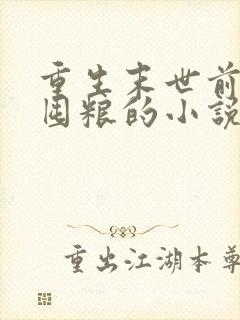 重生末世前
囤粮的小说
重出江湖本尊